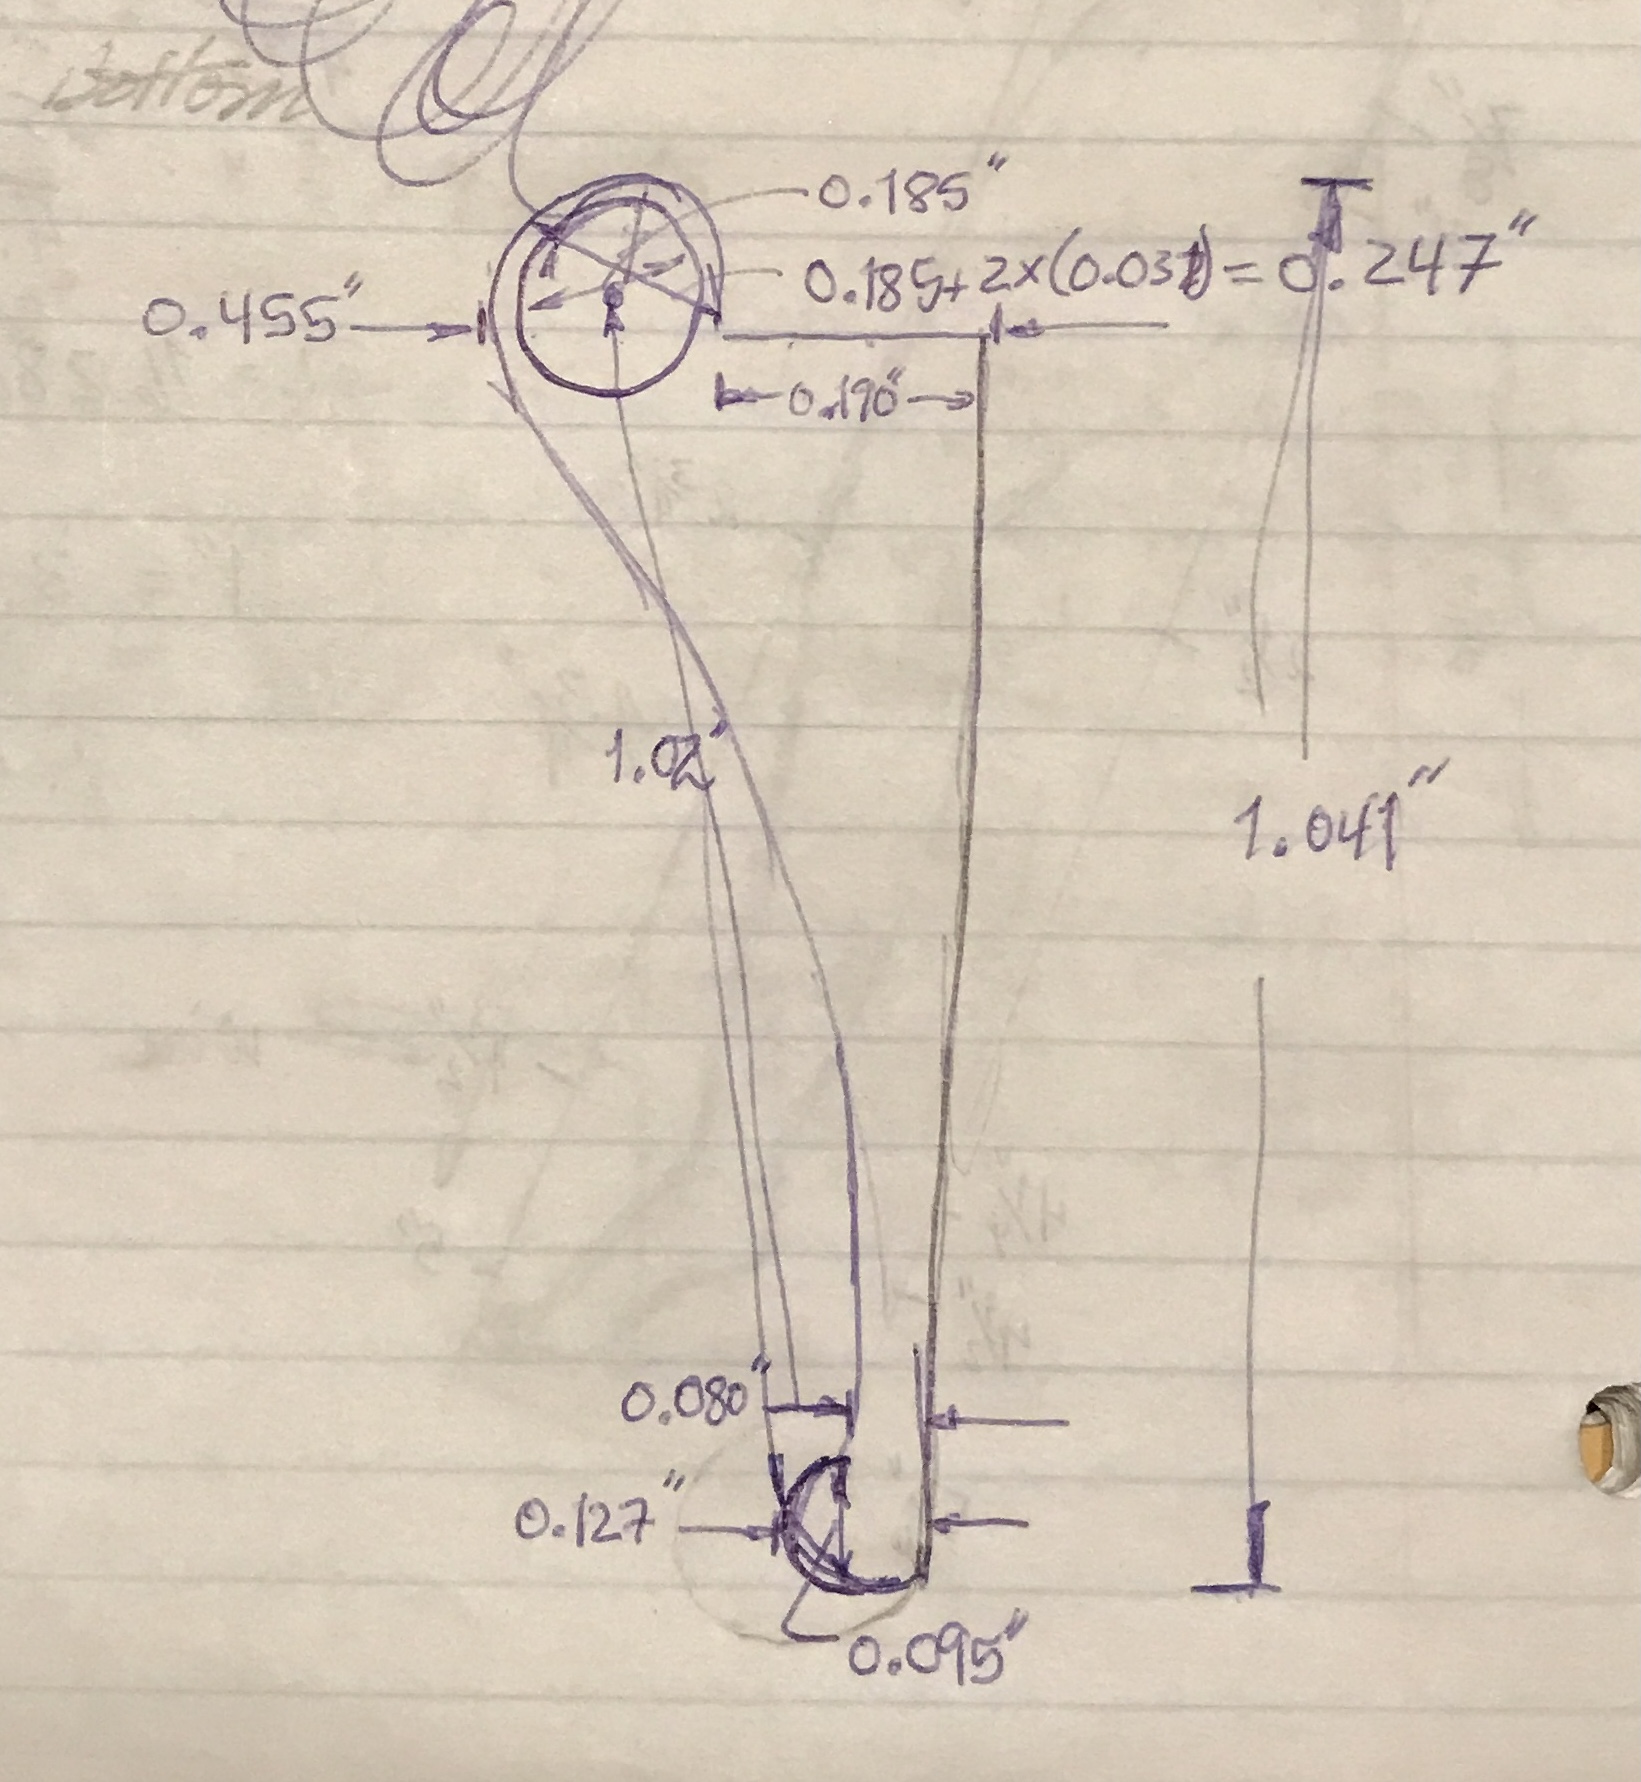 Bottom
0.185"
0.185+2x(0.031)=0.247"
0.455"
0.190"
1.02"
1.041"
0.080"
0.127"
0.095"